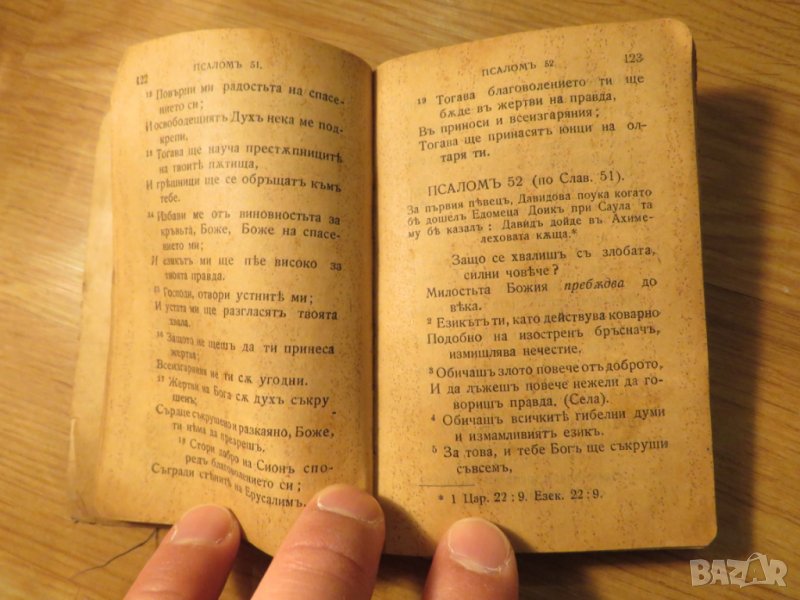 122
ПСАЛОМЪ 51.
12 Повърни ми радостьта на спасе-
нието си;
И освободещиятъ Духъ нека ме под-
крепи.
13 Тогава ще науча престѫпниците
на твоите пѫтища,
И грѣшници ще се обръщатъ къмъ
тебе.
14 Избави ме отъ виновностьта за
кръвьта, Боже, Боже на спасе-
нието ми;
И езикътъ ми ще пѣе високо за
твоята правда.
15 Господи, отвори устните ми;
И устата ми ще разгласятъ твоята
хвала.
16 Защото не щешъ да ти принеса
жертва;
Всеизгаряния не ти сѫ угодни.
17 Жертви на Бога сѫ духъ съкру-
шенъ;
Сърдце съкрушено и разкаяно, Боже,
ти нѣма да презрешъ.
18 Стори добро на Сионъ спо-
редъ благоволението си;
Съгради стѣните на Ерусалимъ.
ПСАЛОМЪ 52.
123
19 Тогава благоволението ти ще
бѫде въ жертви на правда,
Въ приноси и всеизгаряния;
Тогава ще принасятъ юнци на ол-
таря ти.
ПСАЛОМЪ 52 (по Слав. 51).
За първия пѣвецъ, Давидова поука когато
бѣ дошелъ Едомеца Доикъ при Саула та
му бѣ казалъ: Давидъ дойде въ Ахиме-
леховата кѫща.*
Защо се хвалишъ съ злобата,
силни човѣче?
Милостьта Божия пребѫдва до
вѣка.
2 Езикътъ ти, като действува коварно
Подобно на изостренъ бръсначъ,
измишлява нечестие,
3 Обичашъ злото повече отъ доброто,
И да лъжешъ повече нежели да го-
воришъ правда. (Села).
4 Обичашъ всичките гибелни думи
и измамливиятъ езикъ.
5 За това, и тебе Богъ ще съкруши
съвсемъ,
* 1 Цар. 22:9. Езек. 22:9.
BAZAR